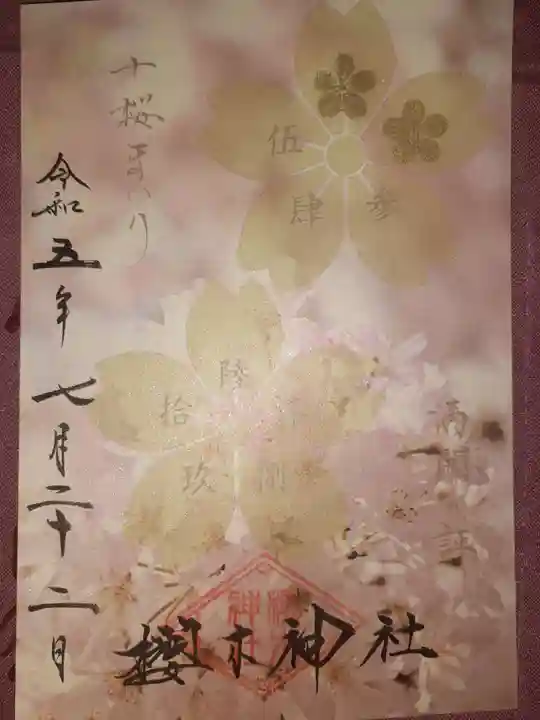 満開証
参
肆
伍
陸
捌
玖
拾
十桜まいり
令和五年七月二十二日
櫻木神社